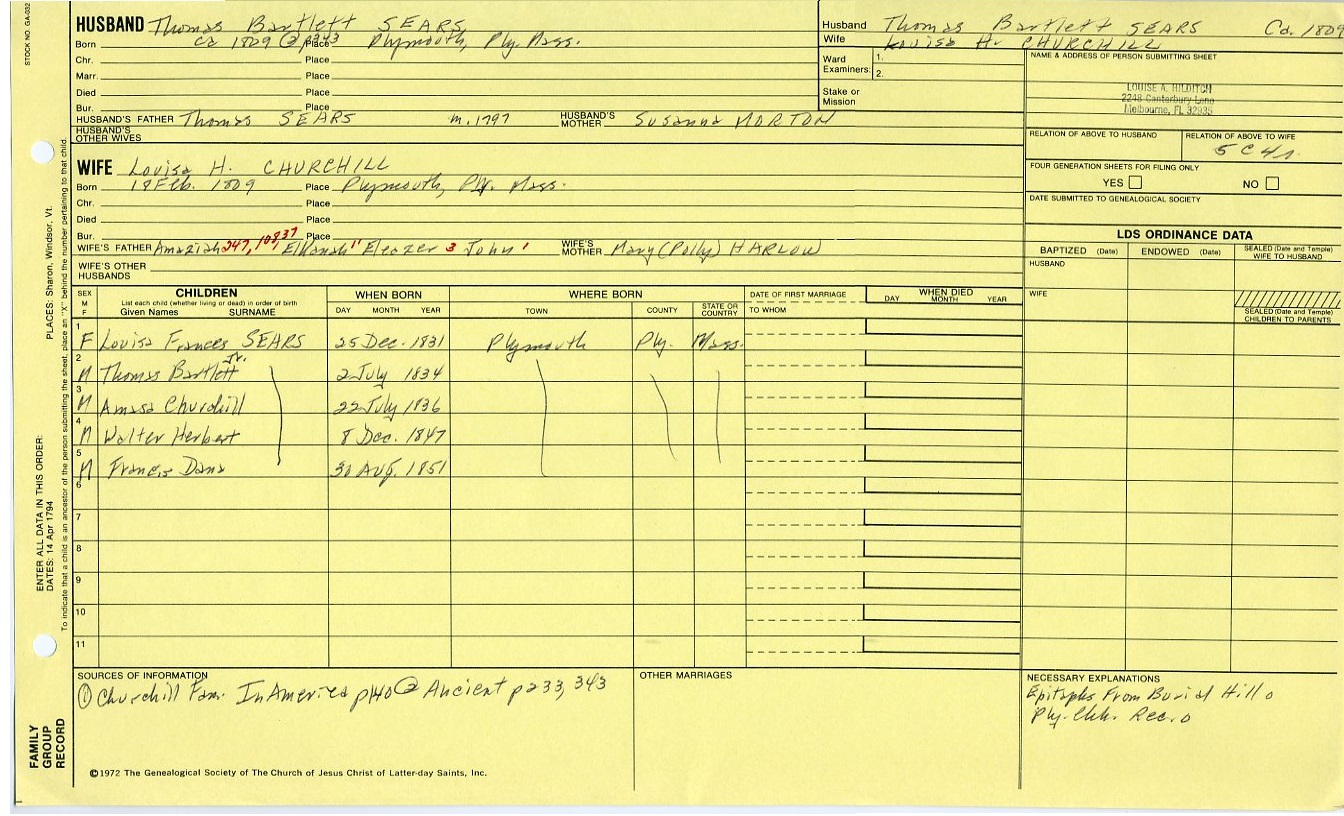 STOCK NO. GA-032
HUSBAND Thomas Bartlett SEARS
Born ca 1809 @ p343 Place Plymouth, Ply. Mass.
Chr. Place
Marr. Place
Died Place
Bur. Place
HUSBAND'S FATHER Thomas SEARS m. 1797 HUSBAND'S MOTHER Susanna MORTON
HUSBAND'S OTHER WIVES
WIFE Louisa H. CHURCHILL
Born 18 Feb. 1809 Place Plymouth, Ply. Mass.
Chr. Place
Died Place
Bur. Place
WIFE'S FATHER Amaziah 247, 10837 Elkanah 11 Eleazer 3 John 1 WIFE'S MOTHER Mary (Polly) HARLOW
WIFE'S OTHER HUSBANDS
Husband Thomas Bartlett SEARS Ca. 1809
Wife Louisa H. CHURCHILL
Ward Examiners: 1.
2.
Stake or Mission
NAME & ADDRESS OF PERSON SUBMITTING SHEET
LOUISE A. HILDITCH
2248 Canterbury Lane
Melbourne, FL 32935
RELATION OF ABOVE TO HUSBAND RELATION OF ABOVE TO WIFE
5C4r.
FOUR GENERATION SHEETS FOR FILING ONLY
YES NO
DATE SUBMITTED TO GENEALOGICAL SOCIETY
LDS ORDINANCE DATA
BAPTIZED (Date) ENDOWED (Date) SEALED (Date and Temple) WIFE TO HUSBAND
HUSBAND
WIFE
SEALED (Date and Temple) CHILDREN TO PARENTS
SEX M F CHILDREN WHEN BORN WHERE BORN DATE OF FIRST MARRIAGE WHEN DIED
List each child (whether living or dead) in order of birth
Given Names SURNAME DAY MONTH YEAR TOWN COUNTY STATE OR COUNTRY TO WHOM DAY MONTH YEAR
1 F Louisa Frances SEARS 25 Dec. 1831 Plymouth Ply. Mass.
2 M Thomas Bartlett Jr. 2 July 1834
3 M Amasa Churchill 22 July 1836
4 M Walter Herbert 8 Dec. 1847
5 M Francis Dana 30 Aug. 1851
6
7
8
9
10
11
SOURCES OF INFORMATION
① Churchill Fam. In America p140 @ Ancient p233, 343
OTHER MARRIAGES
NECESSARY EXPLANATIONS
Epitaphs From Burial Hill o
Ply. Chh. Rec. o
©1972 The Genealogical Society of The Church of Jesus Christ of Latter-day Saints, Inc.
FAMILY GROUP RECORD
ENTER ALL DATA IN THIS ORDER:
DATES: 14 Apr 1794
PLACES: Sharon, Windsor, Vt.
To indicate that a child is an ancestor of the person submitting the sheet, place an "X" behind the number pertaining to that child.